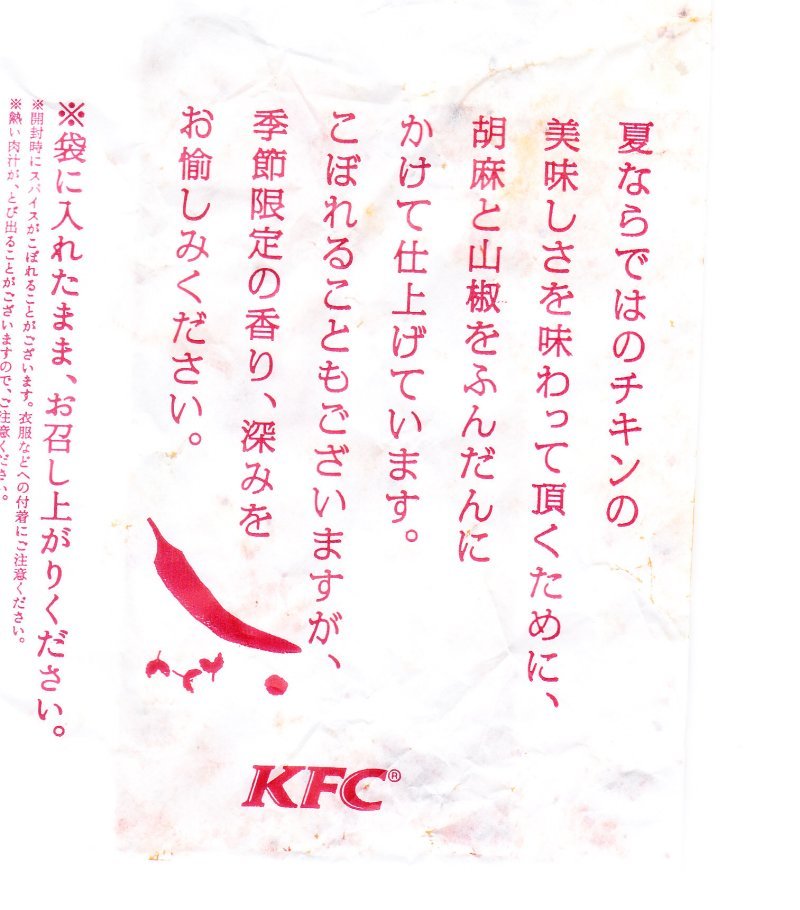 夏ならではのチキンの
美味しさを味わって頂くために、
胡麻と山椒をふんだんに
かけて仕上げています。
こぼれることもございますが、
季節限定の香り、深みを
お愉しみください。
KFC®
※袋に入れたまま、お召し上がりください。
※開封時にスパイスがこぼれることがございます。衣服などへの付着にご注意ください。
※熱い肉汁が、とび出ることがございますので、ご注意ください。